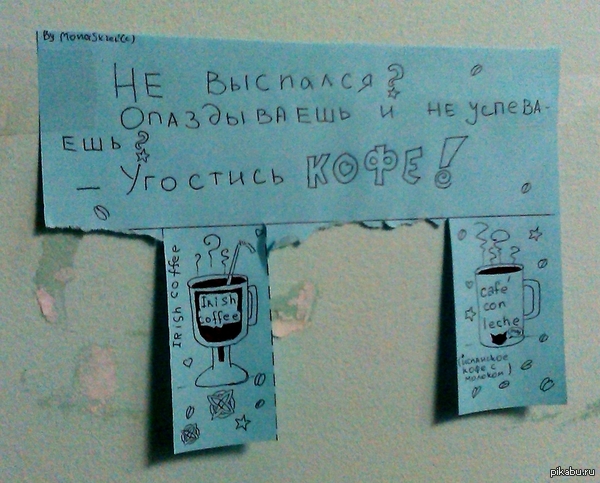 By MonaSkrei(c)
Не выспался?
Опаздываешь и не успева-
ешь?
— Угостись КОФЕ!
Irish coffee
Irish
coffee
café
con
leche
(испанское
кофе с
молоком)
pikabu.ru